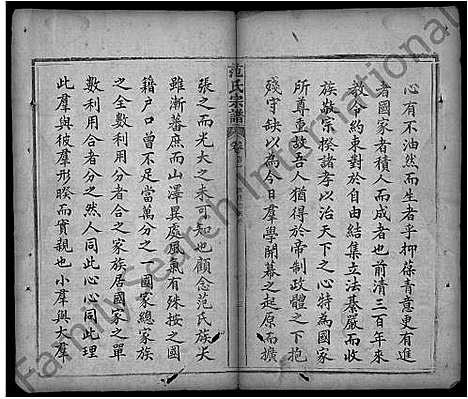 心有不油然而生者乎抑葆青意更有進
者國家者積人而成者也前清三百年來
教令約束對於自由結集立法綦嚴而收
族敬宗揆諸孝以治天下之心特為國家
所尊重故吾人猶得於帝制政體之下抱
殘守缺以為今日羣學開幕之起原而擴
范氏宗譜
張之而光大之未可知也顧念范氏族夫
雖漸蕃庶而山澤異處風氣有殊按之國
籍戶口曾不足當萬分之一國家總家族
之全數利用分者合之家族居國家之單
數利用合者分之然人同此心心同此理
此羣與彼羣形睽而實親也小羣與大羣
FamilySearch International